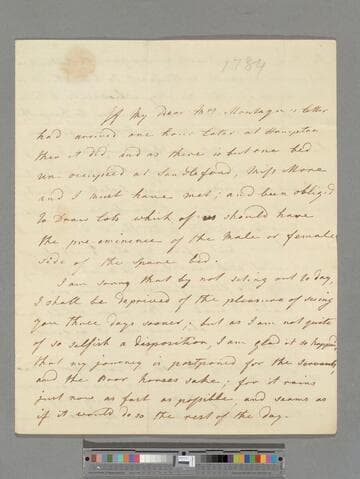 1784
If My Dear Mrs Montagu's letter
had arrived one hour later at Hampton
then it did, and as there is but one bed
un occupied at Sandleford, Miss More
and I must have met; and been obliged
to Draw lots which of us should have
the pre-eminence of the Male or female
side of the spare bed.
I am sorry that by not seting out to day,
I shall be deprived of the pleasure of seeing
you three days sooner; but as I am not quite
of so selfish a disposition, I am glad it so happened
that my journey is postponed for the Servants,
and the Poor horses sake; for it rains
just now as fast as possible, and seams as
if it would do so the rest of the day.